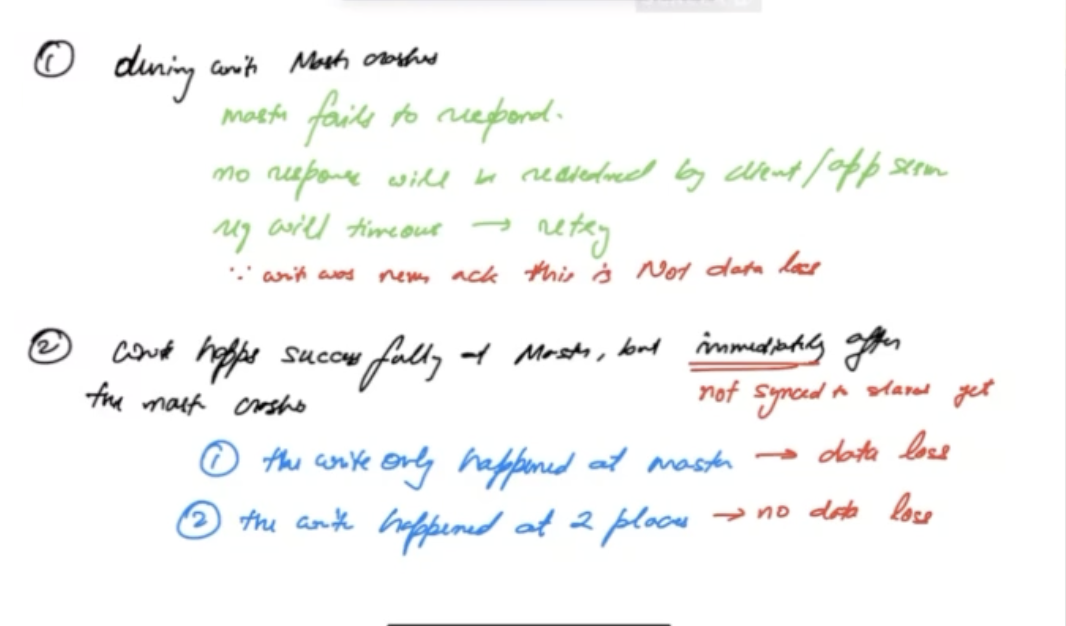 ① during write Master crashes
master fails to respond.
no response will be received by client/app server
req will timeout → retry
∵ write was never ack this is Not data loss
② write happs successfully at Master, but immediately after
the mast crashes not synced to slaves yet
① the write only happened at master → data loss
② the write happened at 2 places → no data loss